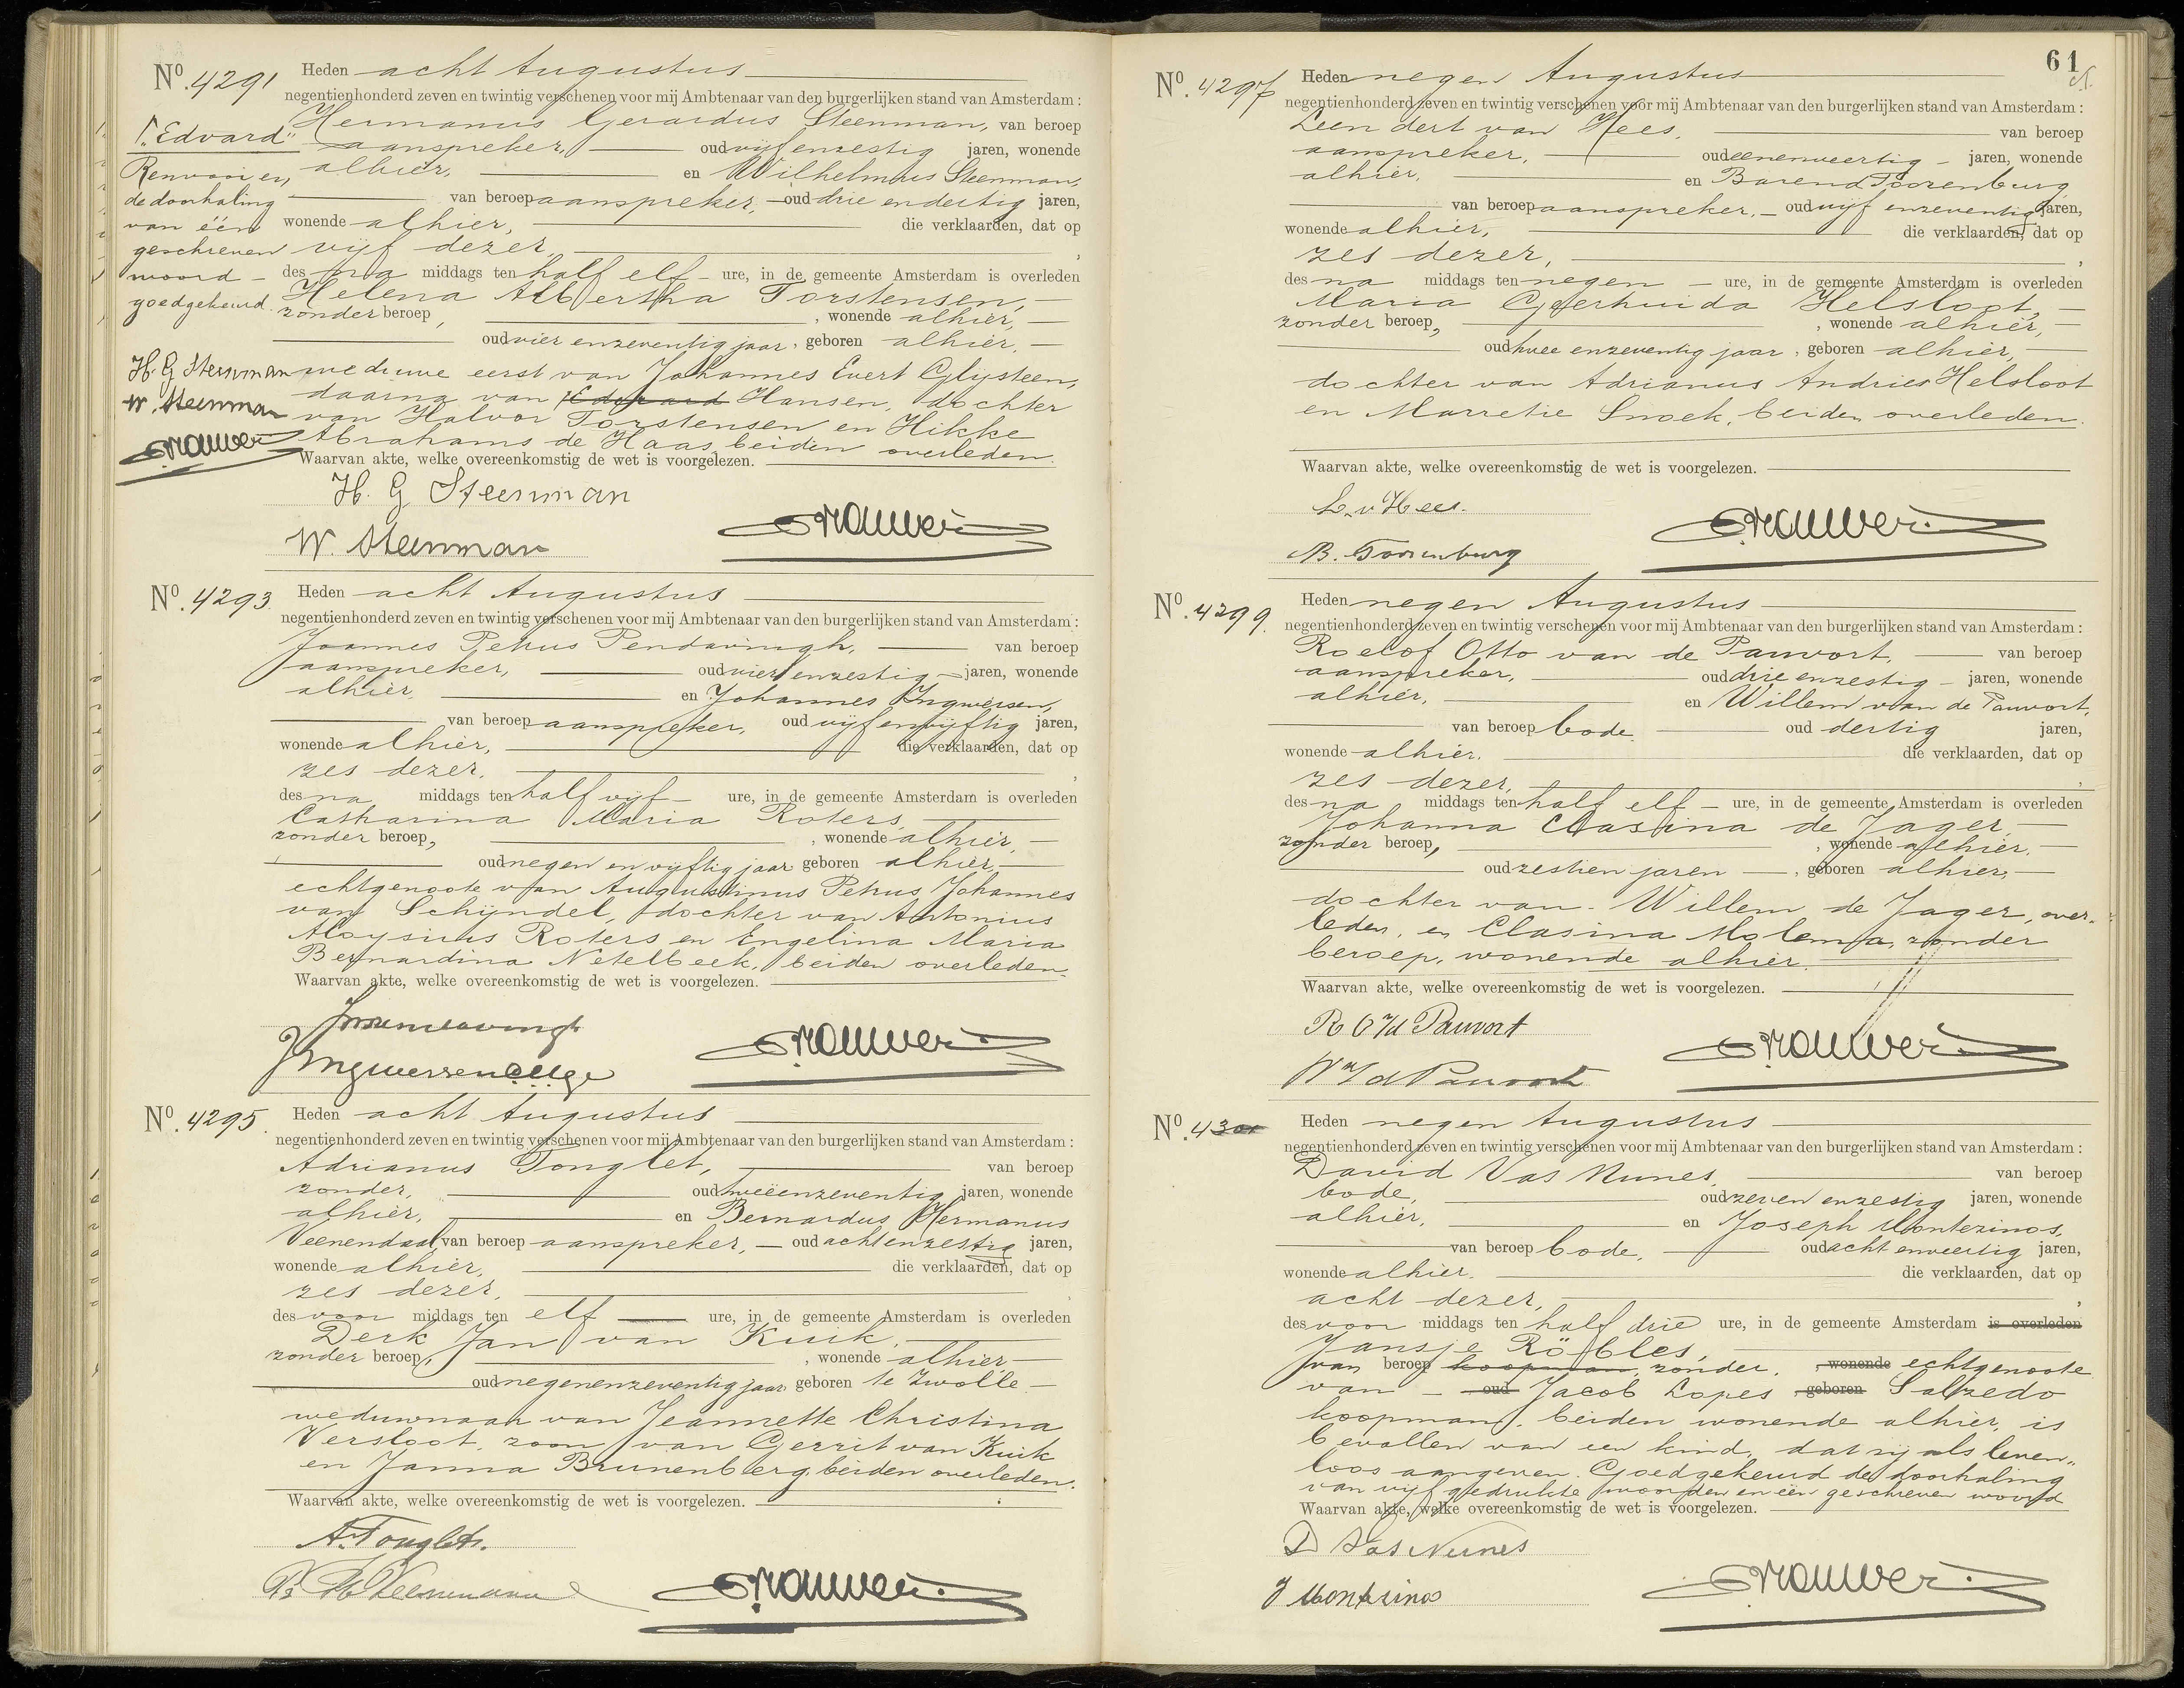 Nº. 4291 Heden acht Augustus
negentienhonderd zeven en twintig verschenen voor mij Ambtenaar van den burgerlijken stand van Amsterdam :
Hermanus Gerardus Steenman, van beroep
aanspreker, oud vijf enzestig jaren, wonende
alhier, en Wilhelmus Steenman,
van beroep aanspreker, oud drie en dertig jaren,
wonende alhier, die verklaarden, dat op
vijf dezer,
des na middags ten half elf ure, in de gemeente Amsterdam is overleden
Helena Albertha Torstensen,
zonder beroep, wonende alhier,
oud vier enzeventig jaar, geboren alhier,
weduwe eerst van Johannes Evert Glijsteen,
daarna van Edouard Hansen, dochter
van Halvor Torstensen en Hikke
Abrahams de Haas, beiden overleden.
Waarvan akte, welke overeenkomstig de wet is voorgelezen.
H. G Steenman
W. Steenman
Brouwer
"Edvard"
Renvooi en
de doorhaling
van één
geschreven
woord
goedgekeurd.
H. G Steenman
W. Steenman
Brouwer
Nº. 4293. Heden acht Augustus
negentienhonderd zeven en twintig verschenen voor mij Ambtenaar van den burgerlijken stand van Amsterdam :
Joannes Petrus Pendavingh, van beroep
aanspreker, oud vier enzestig jaren, wonende
alhier, en Johannes Ingwersen,
van beroep aanspreker, oud vijf en vijftig jaren,
wonende alhier, die verklaarden, dat op
zes dezer,
des na middags ten half vijf ure, in de gemeente Amsterdam is overleden
Catharina Maria Roters,
zonder beroep, wonende alhier,
oud negen en vijftig jaar geboren alhier,
echtgenoote van Augustinus Petrus Johannes
van Schijndel, dochter van Antonius
Aloysius Roters en Engelina Maria
Bernardina Netelbeek, beiden overleden.
Waarvan akte, welke overeenkomstig de wet is voorgelezen.
JIngwersen
Brouwer
Nº. 4295. Heden acht Augustus
negentienhonderd zeven en twintig verschenen voor mij Ambtenaar van den burgerlijken stand van Amsterdam :
Adrianus Tonglet, van beroep
zonder, oud tweeënzeventig jaren, wonende
alhier, en Bernardus Hermanus
Veenendaal van beroep aanspreker, oud acht enzestig jaren,
wonende alhier, die verklaarden, dat op
zes dezer,
des voor middags ten elf ure, in de gemeente Amsterdam is overleden
Derk Jan van Kuik,
zonder beroep, wonende alhier
oud negen enzeventig jaar geboren te Zwolle
weduwnaar van Jeannette Christina
Versloot, zoon van Gerrit van Kuik
en Janna Brunenberg, beiden overleden.
Waarvan akte, welke overeenkomstig de wet is voorgelezen.
A. Tonglet.
Brouwer
61
Nº. 4297 Heden negen Augustus
negentienhonderd zeven en twintig verschenen voor mij Ambtenaar van den burgerlijken stand van Amsterdam :
Leendert van Hees, van beroep
aanspreker, oud eenenveertig jaren, wonende
alhier, en Barend Toorenburg
van beroep aanspreker, oud vijf enzeventig jaren,
wonende alhier, die verklaarden, dat op
zes dezer,
des na middags ten negen ure, in de gemeente Amsterdam is overleden
Maria Geerhuida Helsloot,
zonder beroep, wonende alhier,
oud twee enzeventig jaar, geboren alhier,
dochter van Adrianus Andries Helsloot
en Marretie Snoek, beiden overleden.
Waarvan akte, welke overeenkomstig de wet is voorgelezen.
L. v Hees.
B. Toorenburg
Brouwer
Nº. 4299. Heden negen Augustus
negentienhonderd zeven en twintig verschenen voor mij Ambtenaar van den burgerlijken stand van Amsterdam :
Roelof Otto van de Pauvort, van beroep
aanspreker, oud drie enzestig jaren, wonende
alhier, en Willem van de Pauvort,
van beroep bode oud dertig jaren,
wonende alhier. die verklaarden, dat op
zes dezer,
des na middags ten half elf ure, in de gemeente Amsterdam is overleden
Johanna Clasina de Jager,
zonder beroep, wonende alhier.
oud zestien jaren, geboren alhier,
dochter van Willem de Jager, over„
leden, en Clasina Molema, zonder
beroep, wonende alhier.
Waarvan akte, welke overeenkomstig de wet is voorgelezen.
R O v/d Pauvort
W v/d Pauvort
Brouwer
Nº. 4301 Heden negen Augustus
negentienhonderd zeven en twintig verschenen voor mij Ambtenaar van den burgerlijken stand van Amsterdam :
David Vas Nunes, van beroep
bode, oud zeven enzestig jaren, wonende
alhier, en Joseph Montezinos,
van beroep bode, oud acht enveertig jaren,
wonende alhier. die verklaarden, dat op
acht dezer,
des voor middags ten half drie ure, in de gemeente Amsterdam is overleden
Jansje Röbles,
van beroep koopman, zonder, wonende echtgenoote
van oud Jacob Lopes geboren Salzedo
koopman, beiden wonende alhier, is
bevallen van een kind, dat zij als leven„
loos aangeven. Goedgekeurd de doorhaling
van vijf gedrukte woorden en één geschreven woord
Waarvan akte, welke overeenkomstig de wet is voorgelezen.
D Vas Nunes
J Montezinos
Brouwer